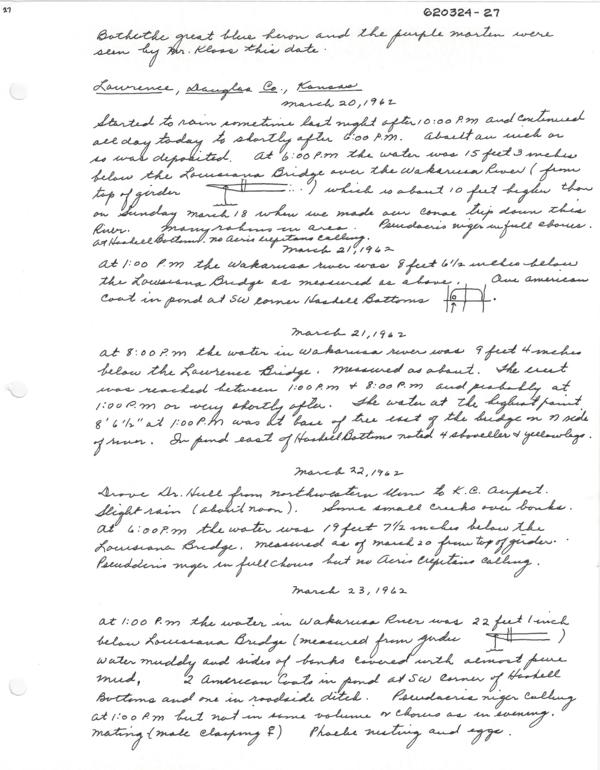 27
620324-27
Both the great blue heron and the purple marten were
seen by Mr. Kloss this date.
Lawrence, Douglas Co., Kansas
March 20, 1962
Started to rain sometime last night after 10:00 P.M and continued
all day today to shortly after 6:00 P.M. About an inch or
so was deposited. At 6:00 P.M the water was 15 feet 3 inches
below the Louisiana Bridge over the Wakarusa River (from
top of girder ) which is about 10 feet higher than
on Sunday March 18 when we made our canoe trip down this
River. Many robins in area. Pseudacris niger in full chorus.
at Haskell Bottoms. no Acris crepitans calling.
March 21, 1962
At 1:00 P.M the Wakarusa river was 8 feet 6 1/2 inches below
the Louisiana Bridge as measured as above. One American
Coot in pond at SW corner Haskell Bottoms .
March 21, 1962
At 8:00 P.M the water in Wakarusa river was 9 feet 4 inches
below the Lawrence Bridge. measured as about. The crest
was reached between 1:00 P.M & 8:00 P.M and probably at
1:00 P.M or very shortly after. The water at the highest point
8' 6 1/2" at 1:00 P.M was at base of tree east of the bridge on N side
of river. In pond east of Haskell Bottoms noted 4 shoveller & yellowlegs.
March 22, 1962
Drove Dr. Hull from northwestern Univ to K.C. Airport.
Slight rain (about noon). Some small creeks over banks.
At 6:00 P.M the water was 19 feet 7 1/2 inches below the
Louisiana Bridge. measured as of March 20 from top of girder.
Pseuddcris niger in full chorus but no Acris Crepitans calling.
March 23, 1962
At 1:00 P.M the water in Wakarusa River was 22 feet 1 inch
below Louisiana Bridge (measured from girder )
Water muddy and sides of banks covered with almost pure
mud, 2 American Coots in pond at SW corner of Haskell
Bottoms and one in roadside ditch. Pseudacris niger calling
at 1:00 P.M but not in same volume or chorus as in evening.
Mating (male clasping ♀) Phoebe nesting and eggs.